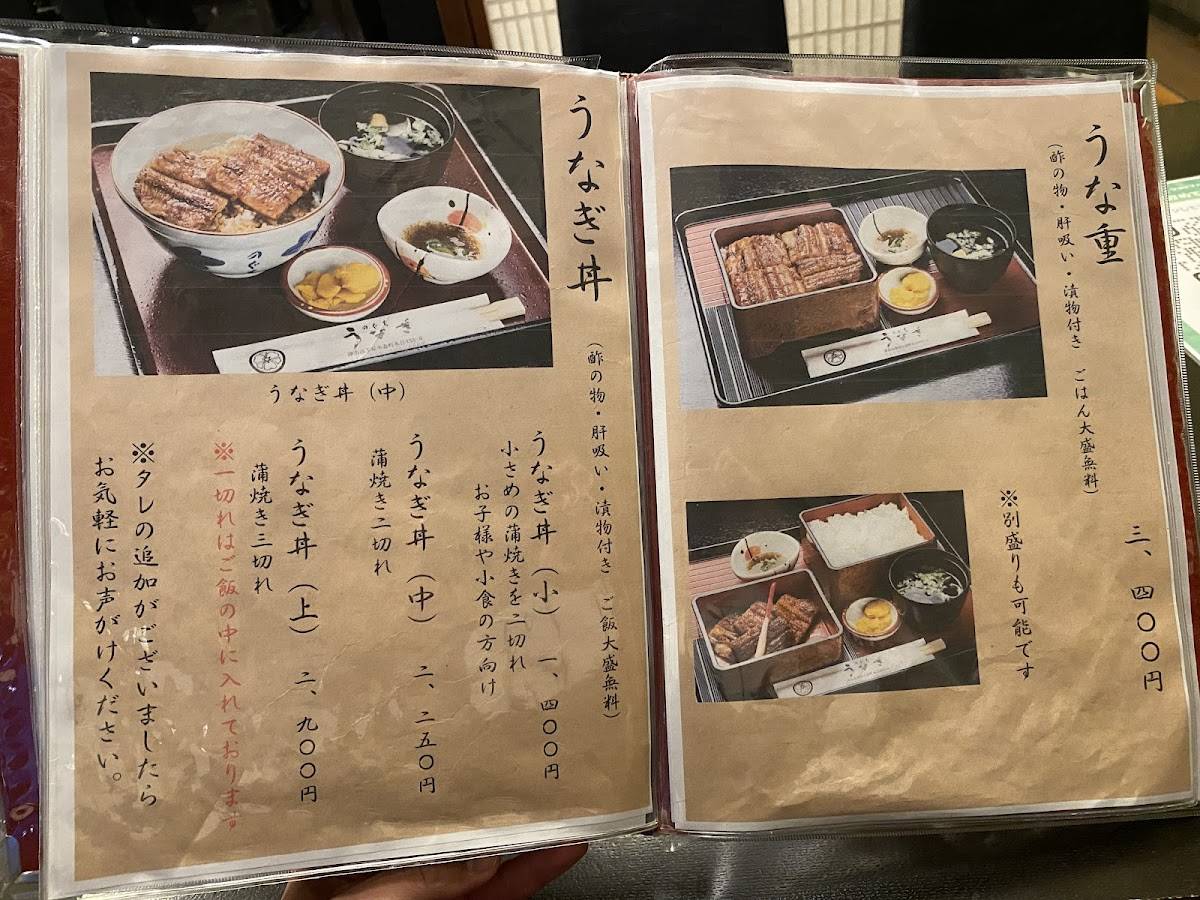 うなぎ丼
(酢の物・肝吸い・漬物付き ご飯大盛無料)
うなぎ丼(中)
うなぎ丼(小) 一、四〇〇円
小さめの蒲焼きを二切れ
お子様や小食の方向け
うなぎ丼(中) 二、二五〇円
蒲焼き二切れ
うなぎ丼(上) 二、九〇〇円
蒲焼き三切れ
※一切れはご飯の中に入れております
※タレの追加がございましたら
お気軽にお声がけください。
うなぎ
うな重
(酢の物・肝吸い・漬物付き ごはん大盛無料)
三、四〇〇円
※別盛りも可能です
うなぎ
うなぎ